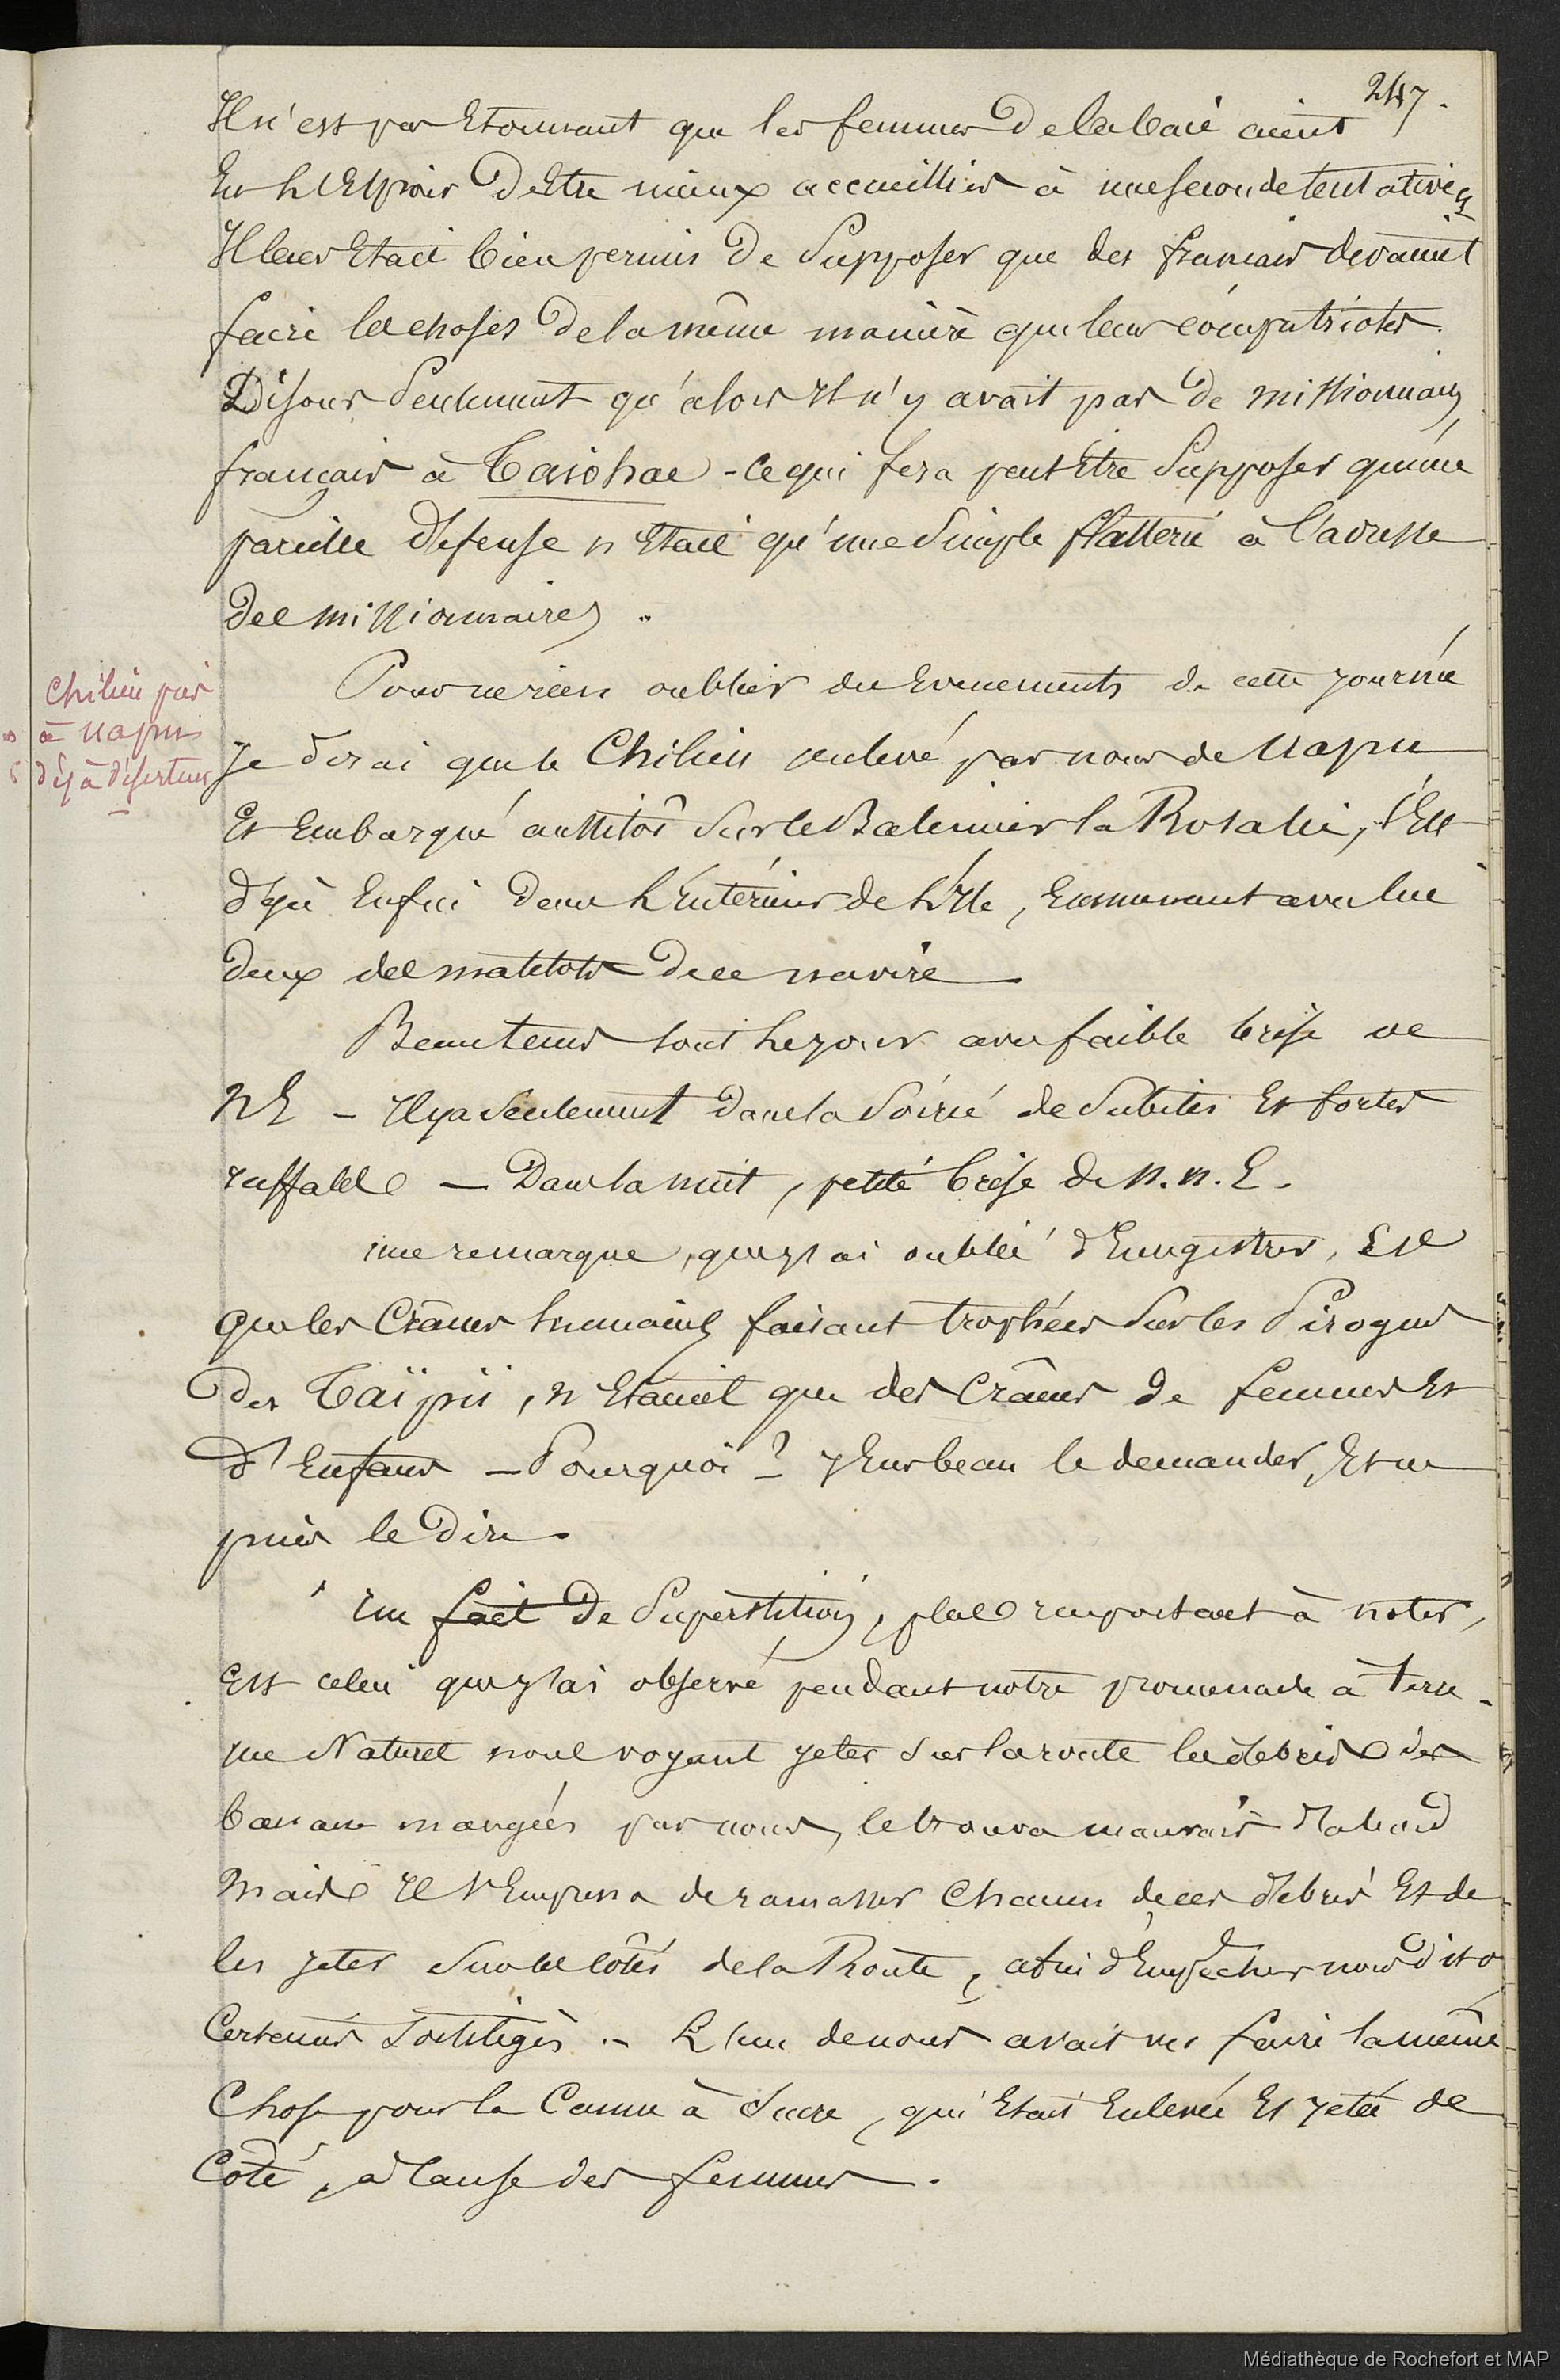 247.
Il n'est pas Etonnant que les femmes de la baie aient
Eu l'Espoir d'Etre mieux accueillies à une seconde tentative
Il leur Etait bien permis de Supposer que des français devaient
faire les choses de la même manière que leurs compatriotes.
Disons Seulement qu'alors Il n'y avait pas de missionnaires
français à Taiohae - ce qui fera peut Etre Supposer qu'une
pareille défense n'Etait qu'une Simple flatterie à l'adresse
des missionnaires.
Pour ne rien oublier des Evenements de cette journée
Je dirai que le Chilien enlevé par nous de Uapou
Et Embarqué aussitôt Sur le Baleinier la Rosalie, s'Est
déjà Enfui dans l'Intérieur de l'Ile, Emmenant avec lui
deux des matelots de ce navire
Chilien pris
à Uapou
déjà déserteur
Beau tems tout le jour avec faible brise de
NE - Il y a Seulement dans la Soirée de Subites Et fortes
raffales — Dans la nuit, petite brise de N.N.E.
une remarque, que j'ai oublié d'Enregistrer, Est
que les Crânes humains faisant trophées Sur les Pirogues
des Taïpii, n'Etaient que des Crânes de femmes Et
d'Enfans — Pourquoi ? J'Eus beau le demander, Et ne
puis le dire.
Un fait de Superstition, plus important à noter,
Est celui que j'ai observé pendant notre promenade à terre.
un Naturel nous voyant jeter sur la route les débris des
bananes mangées par nous, le trouva mauvais d'abord
mais Il s'Empressa de ramasser Chacun de ces débris Et de
les jeter Sur les côtés de la Route, afin d'Empêcher nous dit-on
Certains Sortilèges. - L'un de nous avait vu faire la même
Chose pour la Canne à Sucre, qui Etait Enlevée Et jetée de
Côté, à Cause des femmes.
Médiathèque de Rochefort et MAP